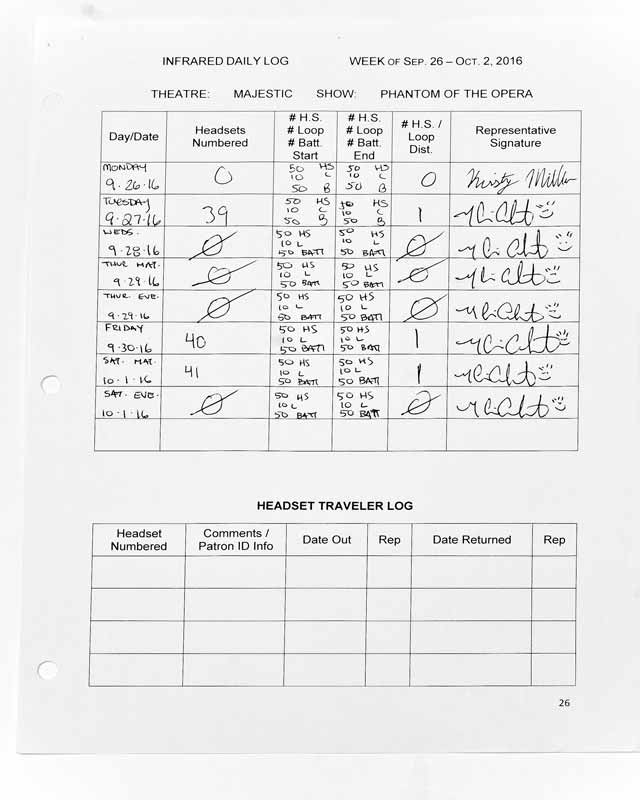 INFRARED DAILY LOG WEEK OF SEP. 26 – OCT. 2, 2016
THEATRE: MAJESTIC SHOW: PHANTOM OF THE OPERA
Day/Date
Headsets
Numbered
# H.S.
# Loop
# Batt.
Start
# H.S.
# Loop
# Batt.
End
# H.S. /
Loop
Dist.
Representative
Signature
MONDAY
9.26.16
0
50 HS
10 L
50 B
50 HS
10 L
50 B
0
Kristy Miller
TUESDAY
9.27.16
39
50 HS
10 L
50 B
50 HS
10 L
50 B
1
WEDS.
9.28.16
Ø
50 HS
10 L
50 BATT
50 HS
10 L
50 BATT
Ø
THUR MAT.
9.29.16
Ø
50 HS
10 L
50 BATT
50 HS
10 L
50 BATT
Ø
THUR. EVE.
9.29.16
Ø
50 HS
10 L
50 BATT
50 HS
10 L
50 BATT
Ø
FRIDAY
9.30.16
40
50 HS
10 L
50 BATT
50 HS
10 L
50 BATT
1
SAT. MAT.
10.1.16
41
50 HS
10 L
50 BATT
50 HS
10 L
50 BATT
1
SAT. EVE.
10.1.16
Ø
50 HS
10 L
50 BATT
50 HS
10 L
50 BATT
Ø
HEADSET TRAVELER LOG
Headset
Numbered
Comments /
Patron ID Info
Date Out
Rep
Date Returned
Rep
26